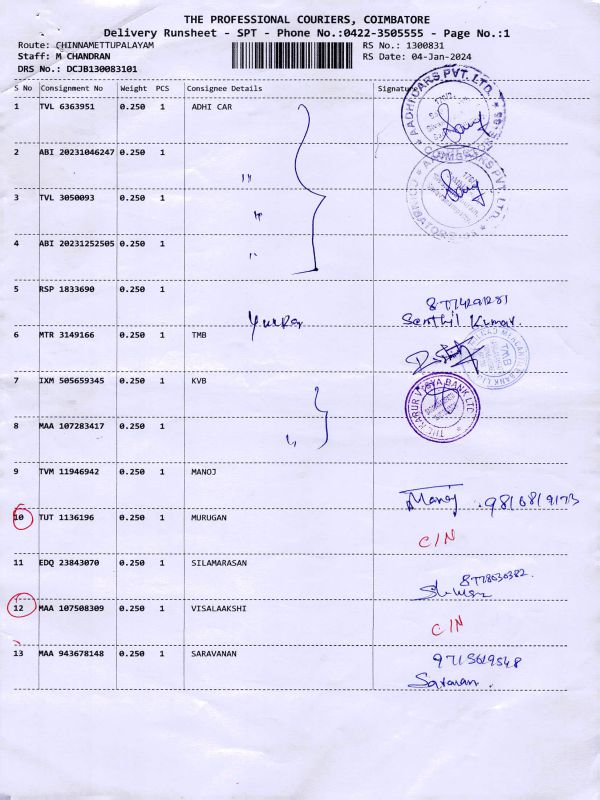 THE PROFESSIONAL COURIERS, COIMBATORE
Delivery Runsheet - SPT - Phone No.:0422-3505555 - Page No.:1
Route: CHINNAMETTUPALAYAM RS No.: 1300831
Staff: M CHANDRAN RS Date: 04-Jan-2024
DRS No.: DCJB130083101
S No Consignment No Weight PCS Consignee Details Signature
1 TVL 6363951 0.250 1 ADHI CAR
AADHI CARS PVT. LTD.
2 ABI 20231046247 0.250 1
3 TVL 3050093 0.250 1
4 ABI 20231252505 0.250 1
5 RSP 1833690 0.250 1
Senthil Kumar.
6 MTR 3149166 0.250 1 TMB
TMB
7 IXM 505659345 0.250 1 KVB
THE KARUR VYSYA BANK LTD
8 MAA 107283417 0.250 1
9 TVM 11946942 0.250 1 MANOJ
Manoj
10 TUT 1136196 0.250 1 MURUGAN
C/N
11 EDQ 23843070 0.250 1 SILAMARASAN
12 MAA 107508309 0.250 1 VISALAAKSHI
C/N
13 MAA 943678148 0.250 1 SARAVANAN
9715619548